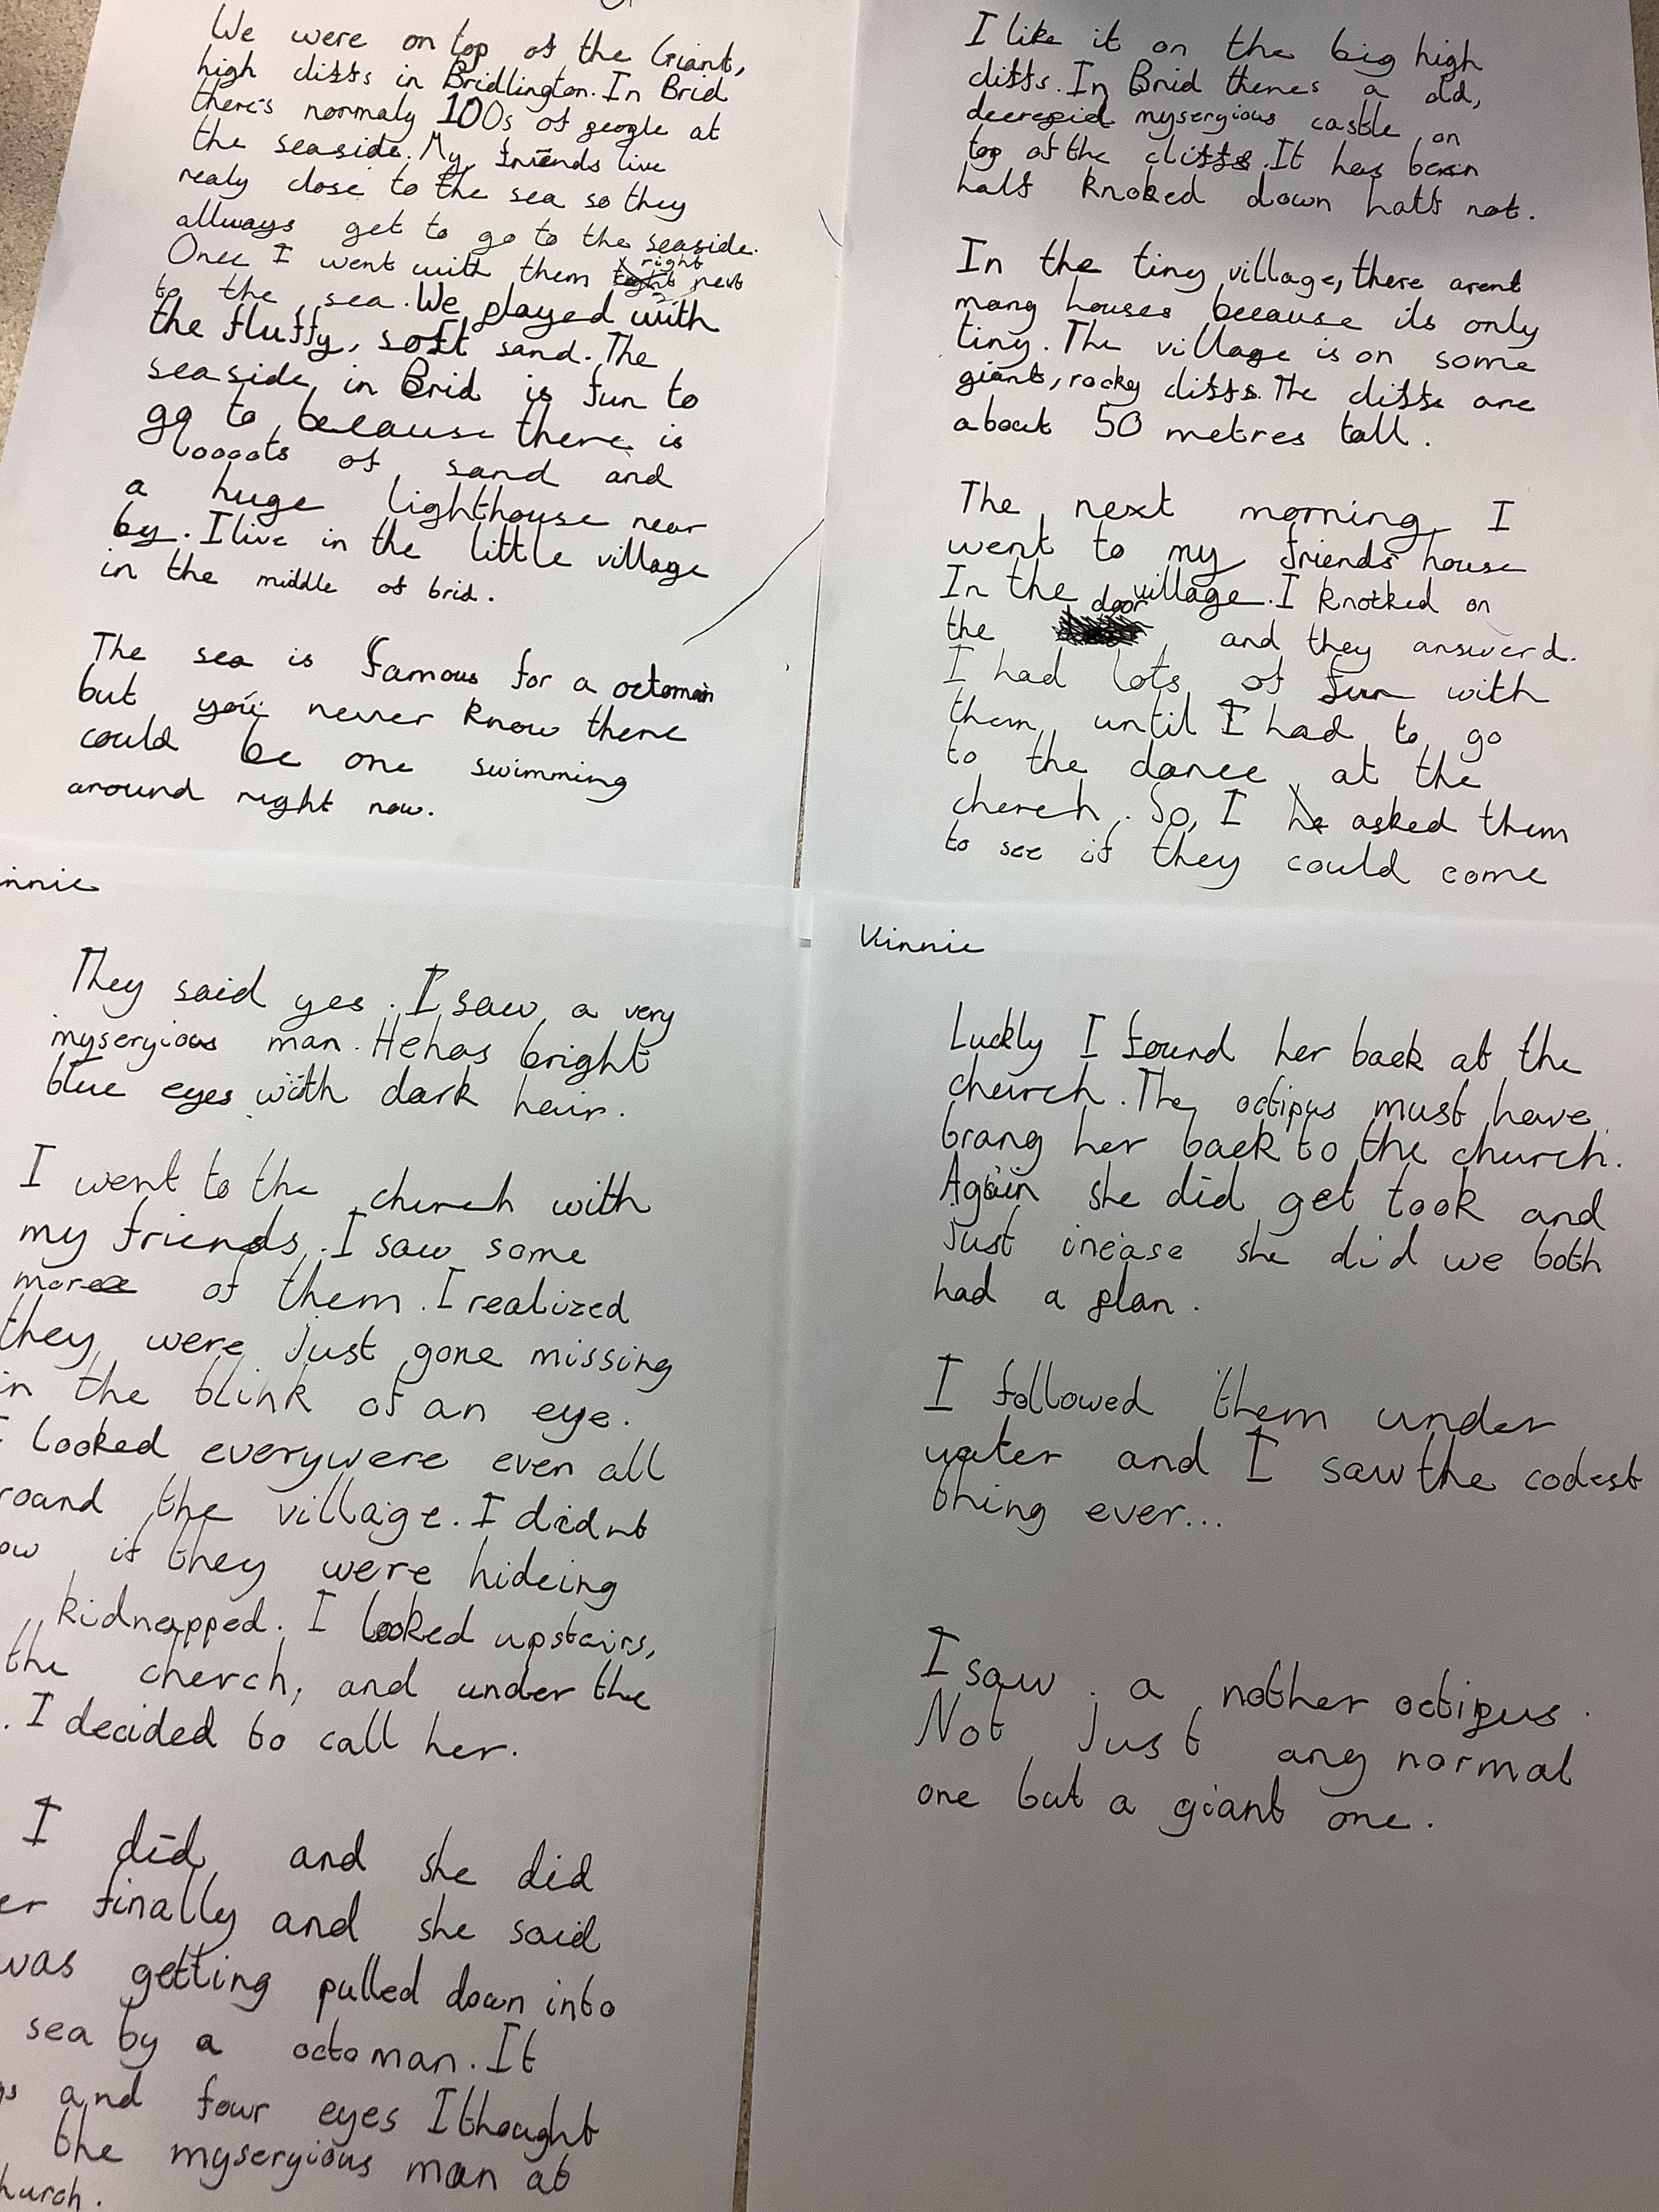 We were on top of the Giant,
high cliffs in Bridlington. In Brid
there's normaly 100s of people at
the seaside. My friends live
realy close to the sea so they
allways get to go to the seaside.
Once I went with them right next
to the sea. We played with
the fluffy, soft sand. The
seaside in Brid is fun to
go to because there is
looooots of sand and
a huge lighthouse near
by. I live in the little village
in the middle of brid.
The sea is famous for a octoman
but you never know there
could be one swimming
around right now.
I like it on the big high
cliffs. In Brid theres a old,
decrepid mysergious castle on
top of the cliffs. It has been
half knoked down half not.
In the tiny village, there arent
many houses because its only
tiny. The village is on some
giant, rocky cliffs. The cliffs are
about 50 metres tall.
The next morning I
went to my friends house
In the village. I knocked on
the door and they answerd.
I had lots of fun with
them until I had to go
to the dance at the
cherch. So, I asked them
to see if they could come
nnie
They said yes. I saw a very
mysergious man. He has bright
blue eyes with dark hair.
I went to the church with
my friends. I saw some
more of them. I realized
they were Just gone missing
in the blink of an eye.
I looked everywere even all
round the village. I didnt
ow if they were hideing
kidnapped. I looked upstairs,
the cherch, and under the
. I decided to call her.
I did and she did
er finally and she said
was getting pulled down into
sea by a octoman. It
gs and four eyes I thought
the mysergious man at
hurch.
Vinnie
Luckly I found her back at the
church. The octipus must have
brang her back to the church.
Again she did get took and
Just incase she did we both
had a plan.
I followed them under
water and I saw the codest
thing ever...
I saw a nother octipus.
Not Just any normal
one but a giant one.